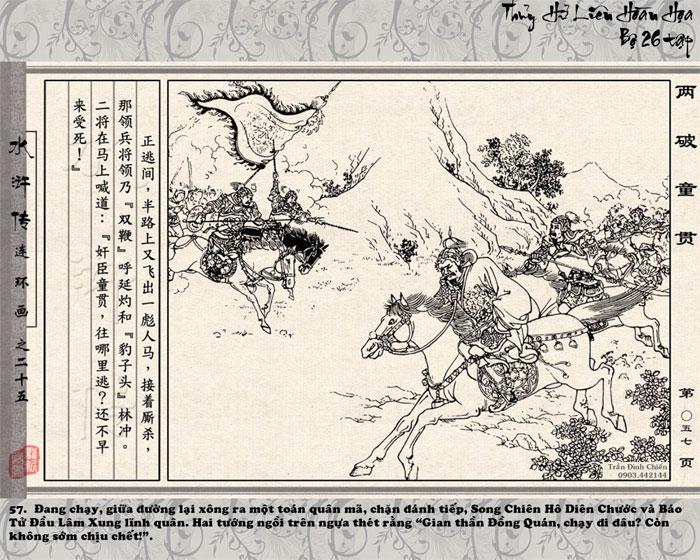 Thủy Hử Liên Hoàn Họa
Bộ 26 tập
两破童贯
第〇五七页
正逃间，半路上又飞出一彪人马，接着厮杀，
那领兵将领乃『双鞭』呼延灼和『豹子头』林冲。
二将在马上喊道：『奸臣童贯，往哪里逃？还不早
来受死！』
水浒传连环画之二十五
Trần Đình Chiến
0903.442144
57. Đang chạy, giữa đường lại xông ra một toán quân mã, chặn đánh tiếp, Song Chiên Hô Diên Chước và Báo
Tử Đầu Lâm Xung lĩnh quân. Hai tướng ngồi trên ngựa thét rằng “Gian thần Đồng Quán, chạy đi đâu? Còn
không sớm chịu chết!”.